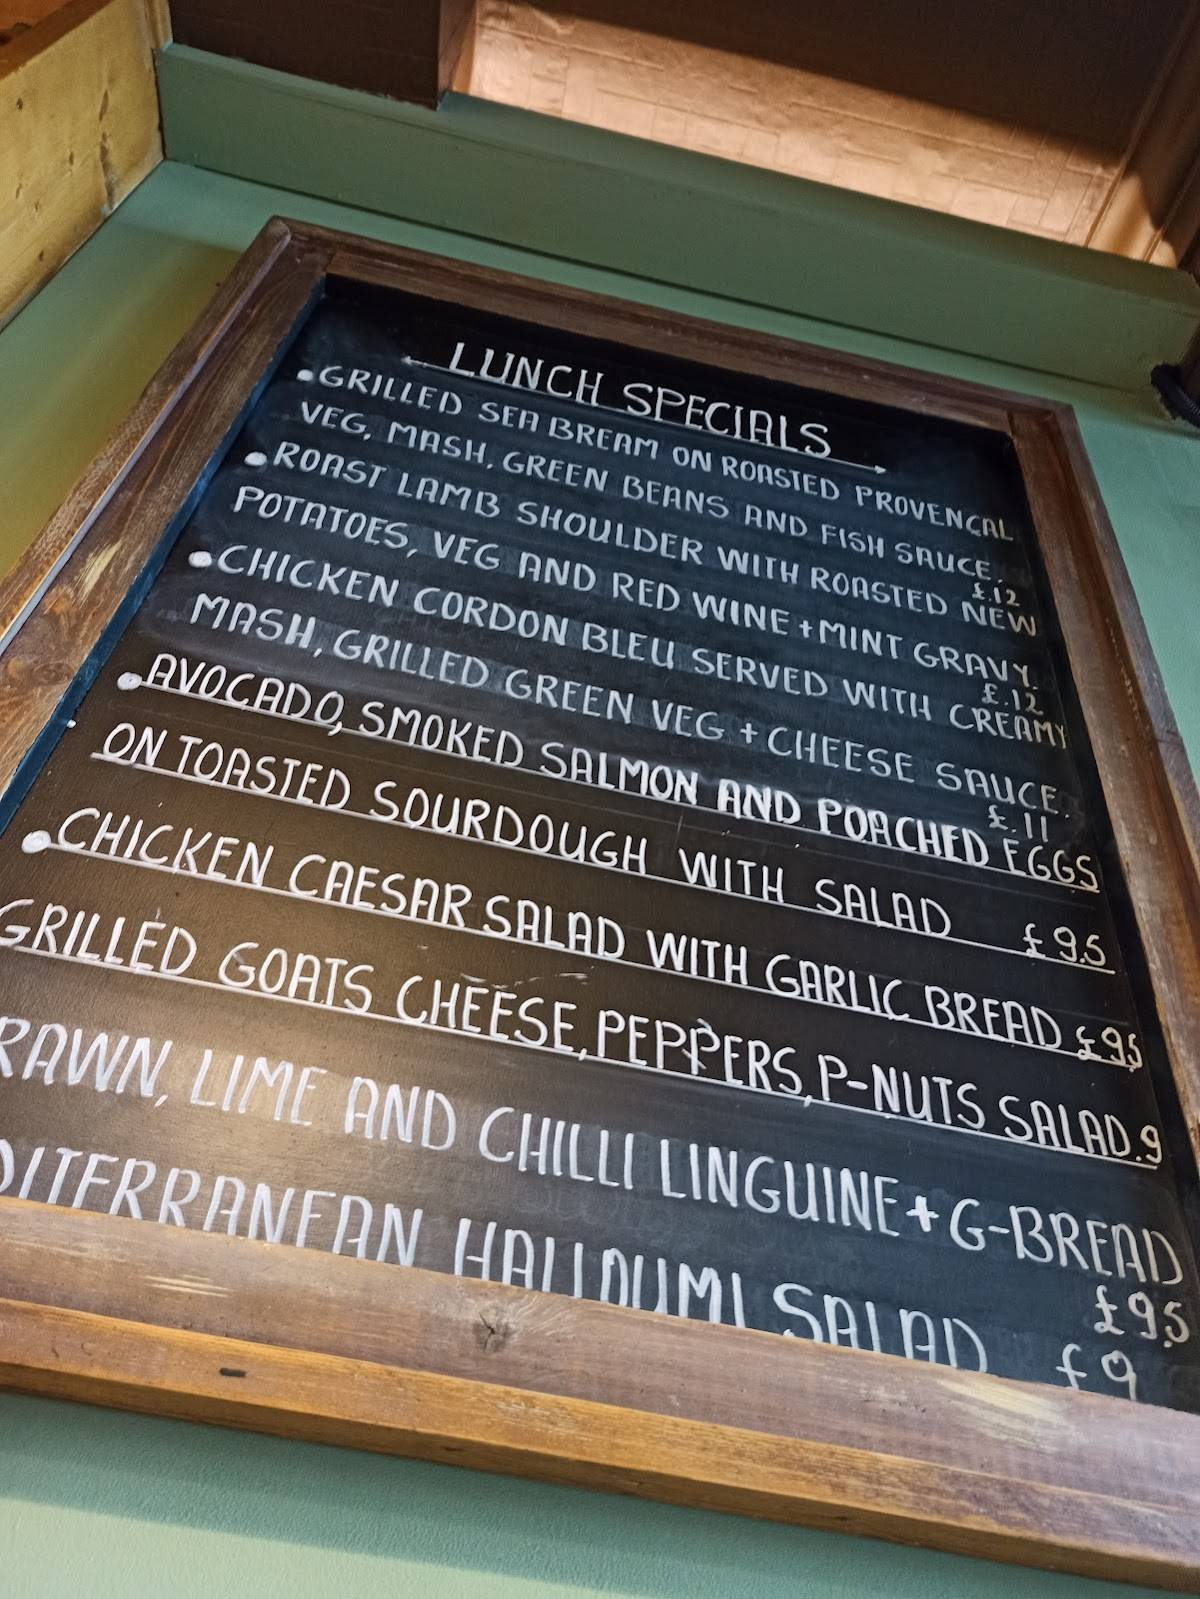 LUNCH SPECIALS
•GRILLED SEA BREAM ON ROASTED PROVENÇAL
VEG, MASH, GREEN BEANS AND FISH SAUCE.
£.12
•ROAST LAMB SHOULDER WITH ROASTED NEW
POTATOES, VEG AND RED WINE+MINT GRAVY.
£.12
•CHICKEN CORDON BLEU SERVED WITH CREAMY
MASH, GRILLED GREEN VEG + CHEESE SAUCE.
£.11
•AVOCADO, SMOKED SALMON AND POACHED EGGS
ON TOASTED SOURDOUGH WITH SALAD £9.5
•CHICKEN CAESAR SALAD WITH GARLIC BREAD £9.5
GRILLED GOATS CHEESE, PEPPERS, P-NUTS SALAD.9
RAWN, LIME AND CHILLI LINGUINE+G-BREAD
£9.5
DITERRANEAN HALLOUMI SALAD £9